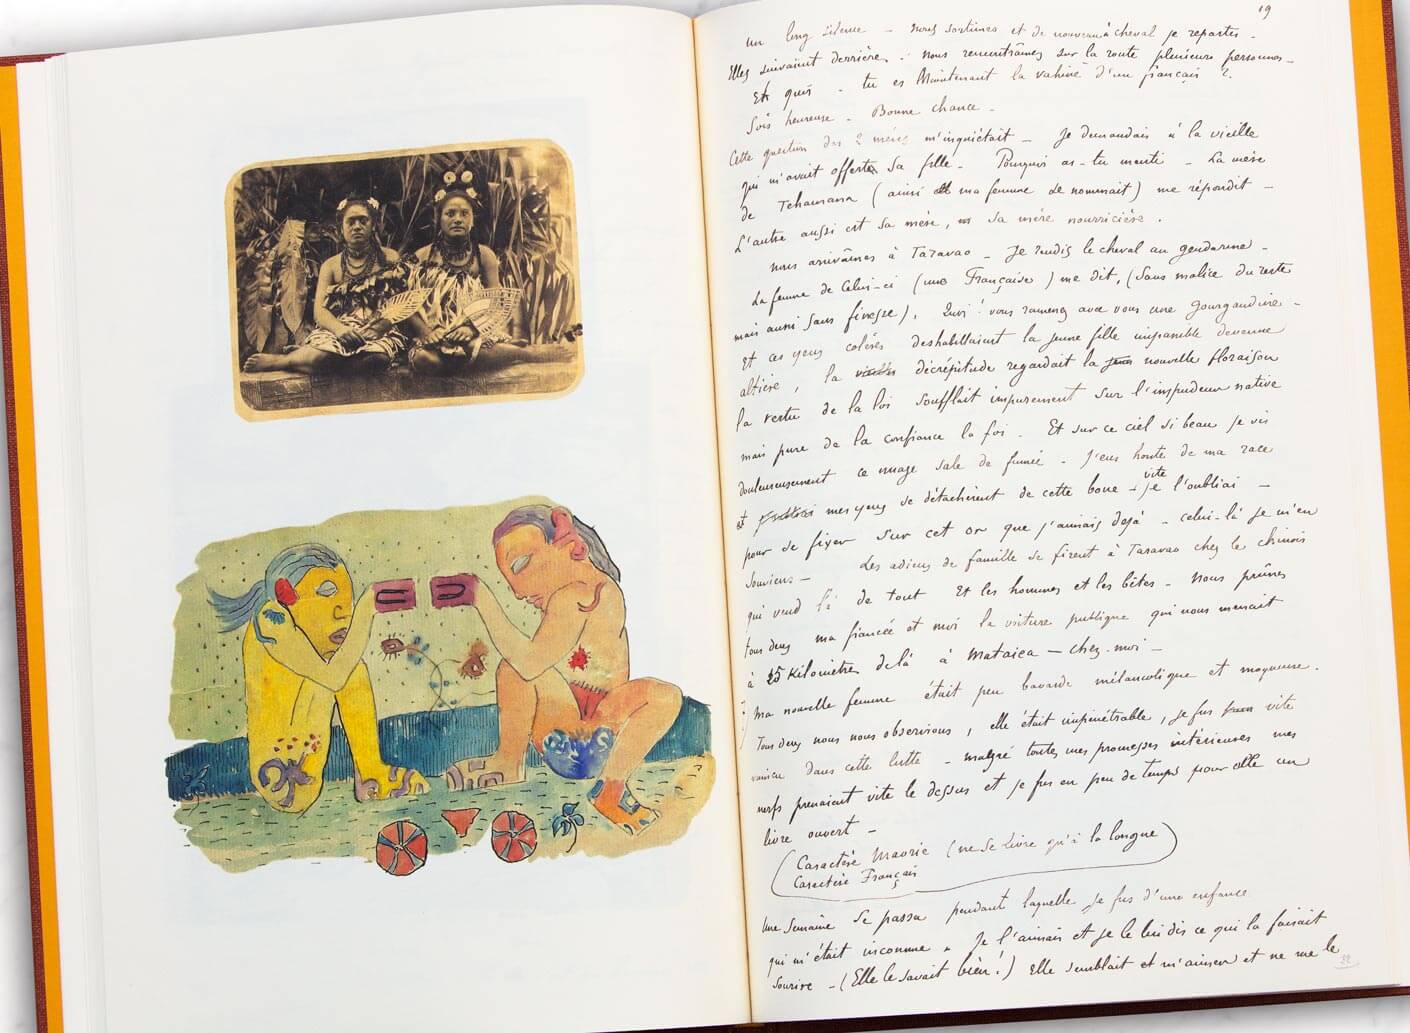 19
un long silence – nous sortîmes et de nouveau à cheval je repartis –
Elles suivaient derrière. Nous rencontrâmes sur la route plusieurs personnes –
Eh quoi – tu es Maintenant la vahine d'un français ?
Sois heureuse – Bonne chance –
Cette question des 2 mères m'inquiétait – Je demandais à la vieille
qui m'avait offert sa fille – Pourquoi as-tu menti – La mère
de Tehamana (ainsi ma femme se nommait) me répondit –
L'autre aussi est sa mère, sa mère nourricière.
nous arrivâmes à Taravao – Je rendis le cheval au gendarme –
La femme de celui-ci (une Française) me dit, (sans malice du reste
mais aussi sans finesse), Quoi! vous ramenez avec vous une gourgandine –
Et ces yeux colères deshabillaient la jeune fille impassible devenue
altière, la vieille décrépitude regardait la nouvelle floraison
la vertu de la loi soufflait impurement sur l'impudeur native
mais pure de la confiance la foi. Et sur ce ciel si beau je vis
douloureusement ce nuage sale de fumée – J'eus honte de ma race
vite
et mes yeux se détachèrent de cette boue – je l'oubliai –
pour se fixer sur cet or que j'aimais déjà – celui-là je m'en
souviens – Les adieux de famille se firent à Taravao chez le chinois
qui vend là de tout Et les hommes et les bêtes – Nous prîmes
tous deux ma fiancée et moi la voiture publique qui nous menait
à 25 Kilomètres de là à Mataiea – chez moi –
Ma nouvelle femme était peu bavarde mélancolique et moqueuse.
Tous deux nous nous observions, elle était impénétrable, je fus vite
vaincu dans cette lutte – malgré toutes mes promesses intérieures mes
nerfs prenaient vite le dessus et je fus en peu de temps pour elle un
livre ouvert –
(Caractère Maorie (ne se livre qu'à la longue)
Caractère Français
Une semaine se passa pendant laquelle je fus d'une enfance
qui m'était inconnue. Je l'aimais et je le lui dis ce qui la faisait
sourire – (Elle le savait bien!) Elle semblait et m'aimer et ne me le
22